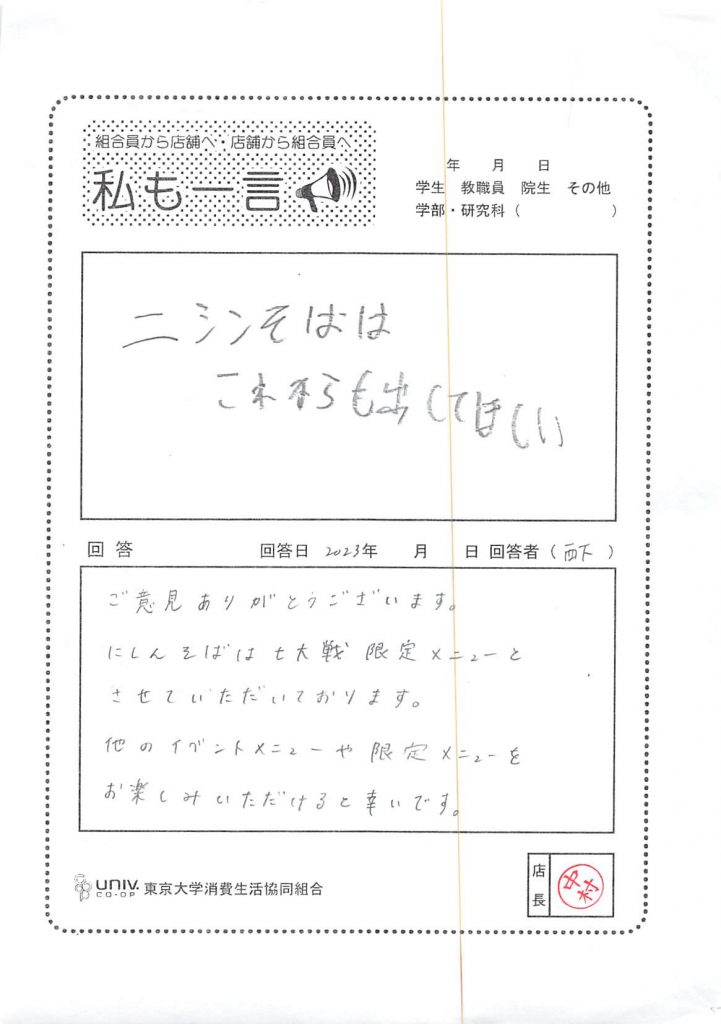 組合員から店舗へ・店舗から組合員へ
私も一言
年 月 日
学生 教職員 院生 その他
学部・研究科（ ）
ニシンそばは
これからも出してほしい
回答 回答日 2023年 月 日 回答者（西下）
ご意見ありがとうございます。
にしんそばは七大戦限定メニューと
させていただいております。
他のイベントメニューや限定メニューを
お楽しみいただけると幸いです。
UNIV. CO-OP 東京大学消費生活協同組合
店長 中村